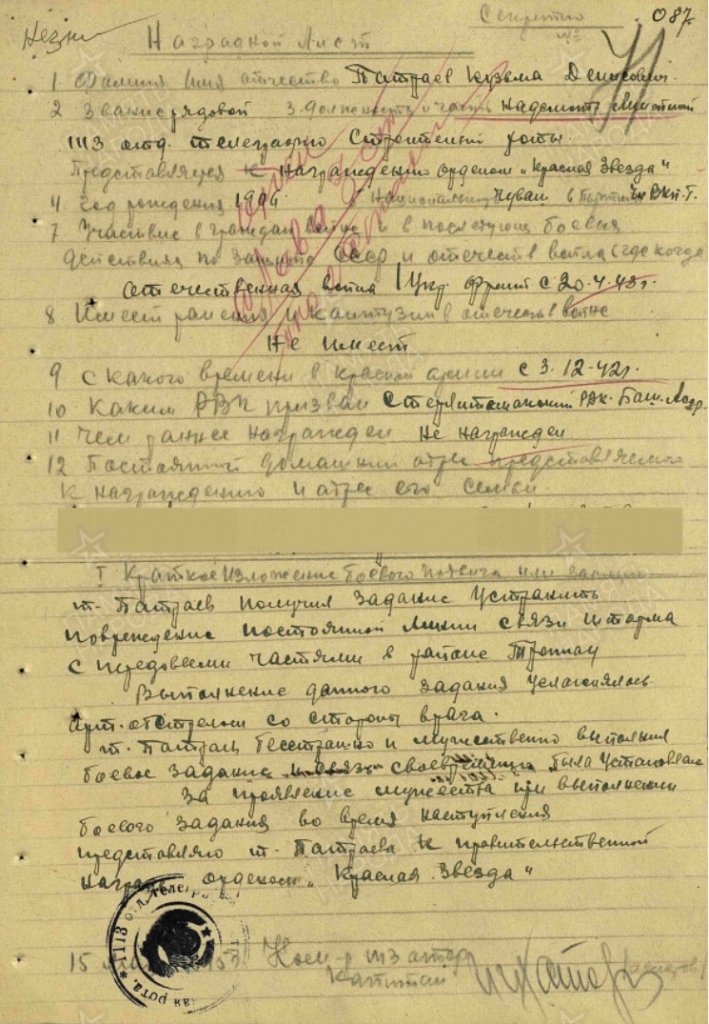 Секретно
087.
Наградной Лист
1 Фамилия Имя отчество Патраев Кузьма Денисович.
2 Звание рядовой 3 должность и часть надсмотр
1113 отд. телеграфно строительной роты.
Представляется к Награждению орденом „Красная Звезда"
4 Год рождения 19 Национальность Чуваш в Партии
7 Участие в граждан войне и в последующ боевых
действиях по защите СССР и отечеств войне (где когда
отечественная война 1 Укр. фронт с 20.4.43 г.
8 Имеет ранения и контузии в отечеств войне
Не имеет
9 с какого времени в красной армии с 3.12.42 г.
10 Каким РВК призван Стерлитамакским РВК. Баш.
11 Чем ранее награжден Не награжден
12 Постоянный домашний адрес представляемого
к награждению и адрес его семьи
I Краткое изложение боевого подвига или
т. Патраев получил задание устранить
повреждение постоянной линии связи штарма
с передовыми частями в районе
Выполнение данного задания усложнялось
арт. обстрелом со стороны врага.
т. Патраев бесстрашно и мужественно выполнил
боевое задание и связь своевременно была установлена
За проявление мужества при выполнении
боевого задания во время наступления
представляю т. Патраева к правительственной
награде орденом „Красная Звезда"
15
Ком-р 1113
капитан